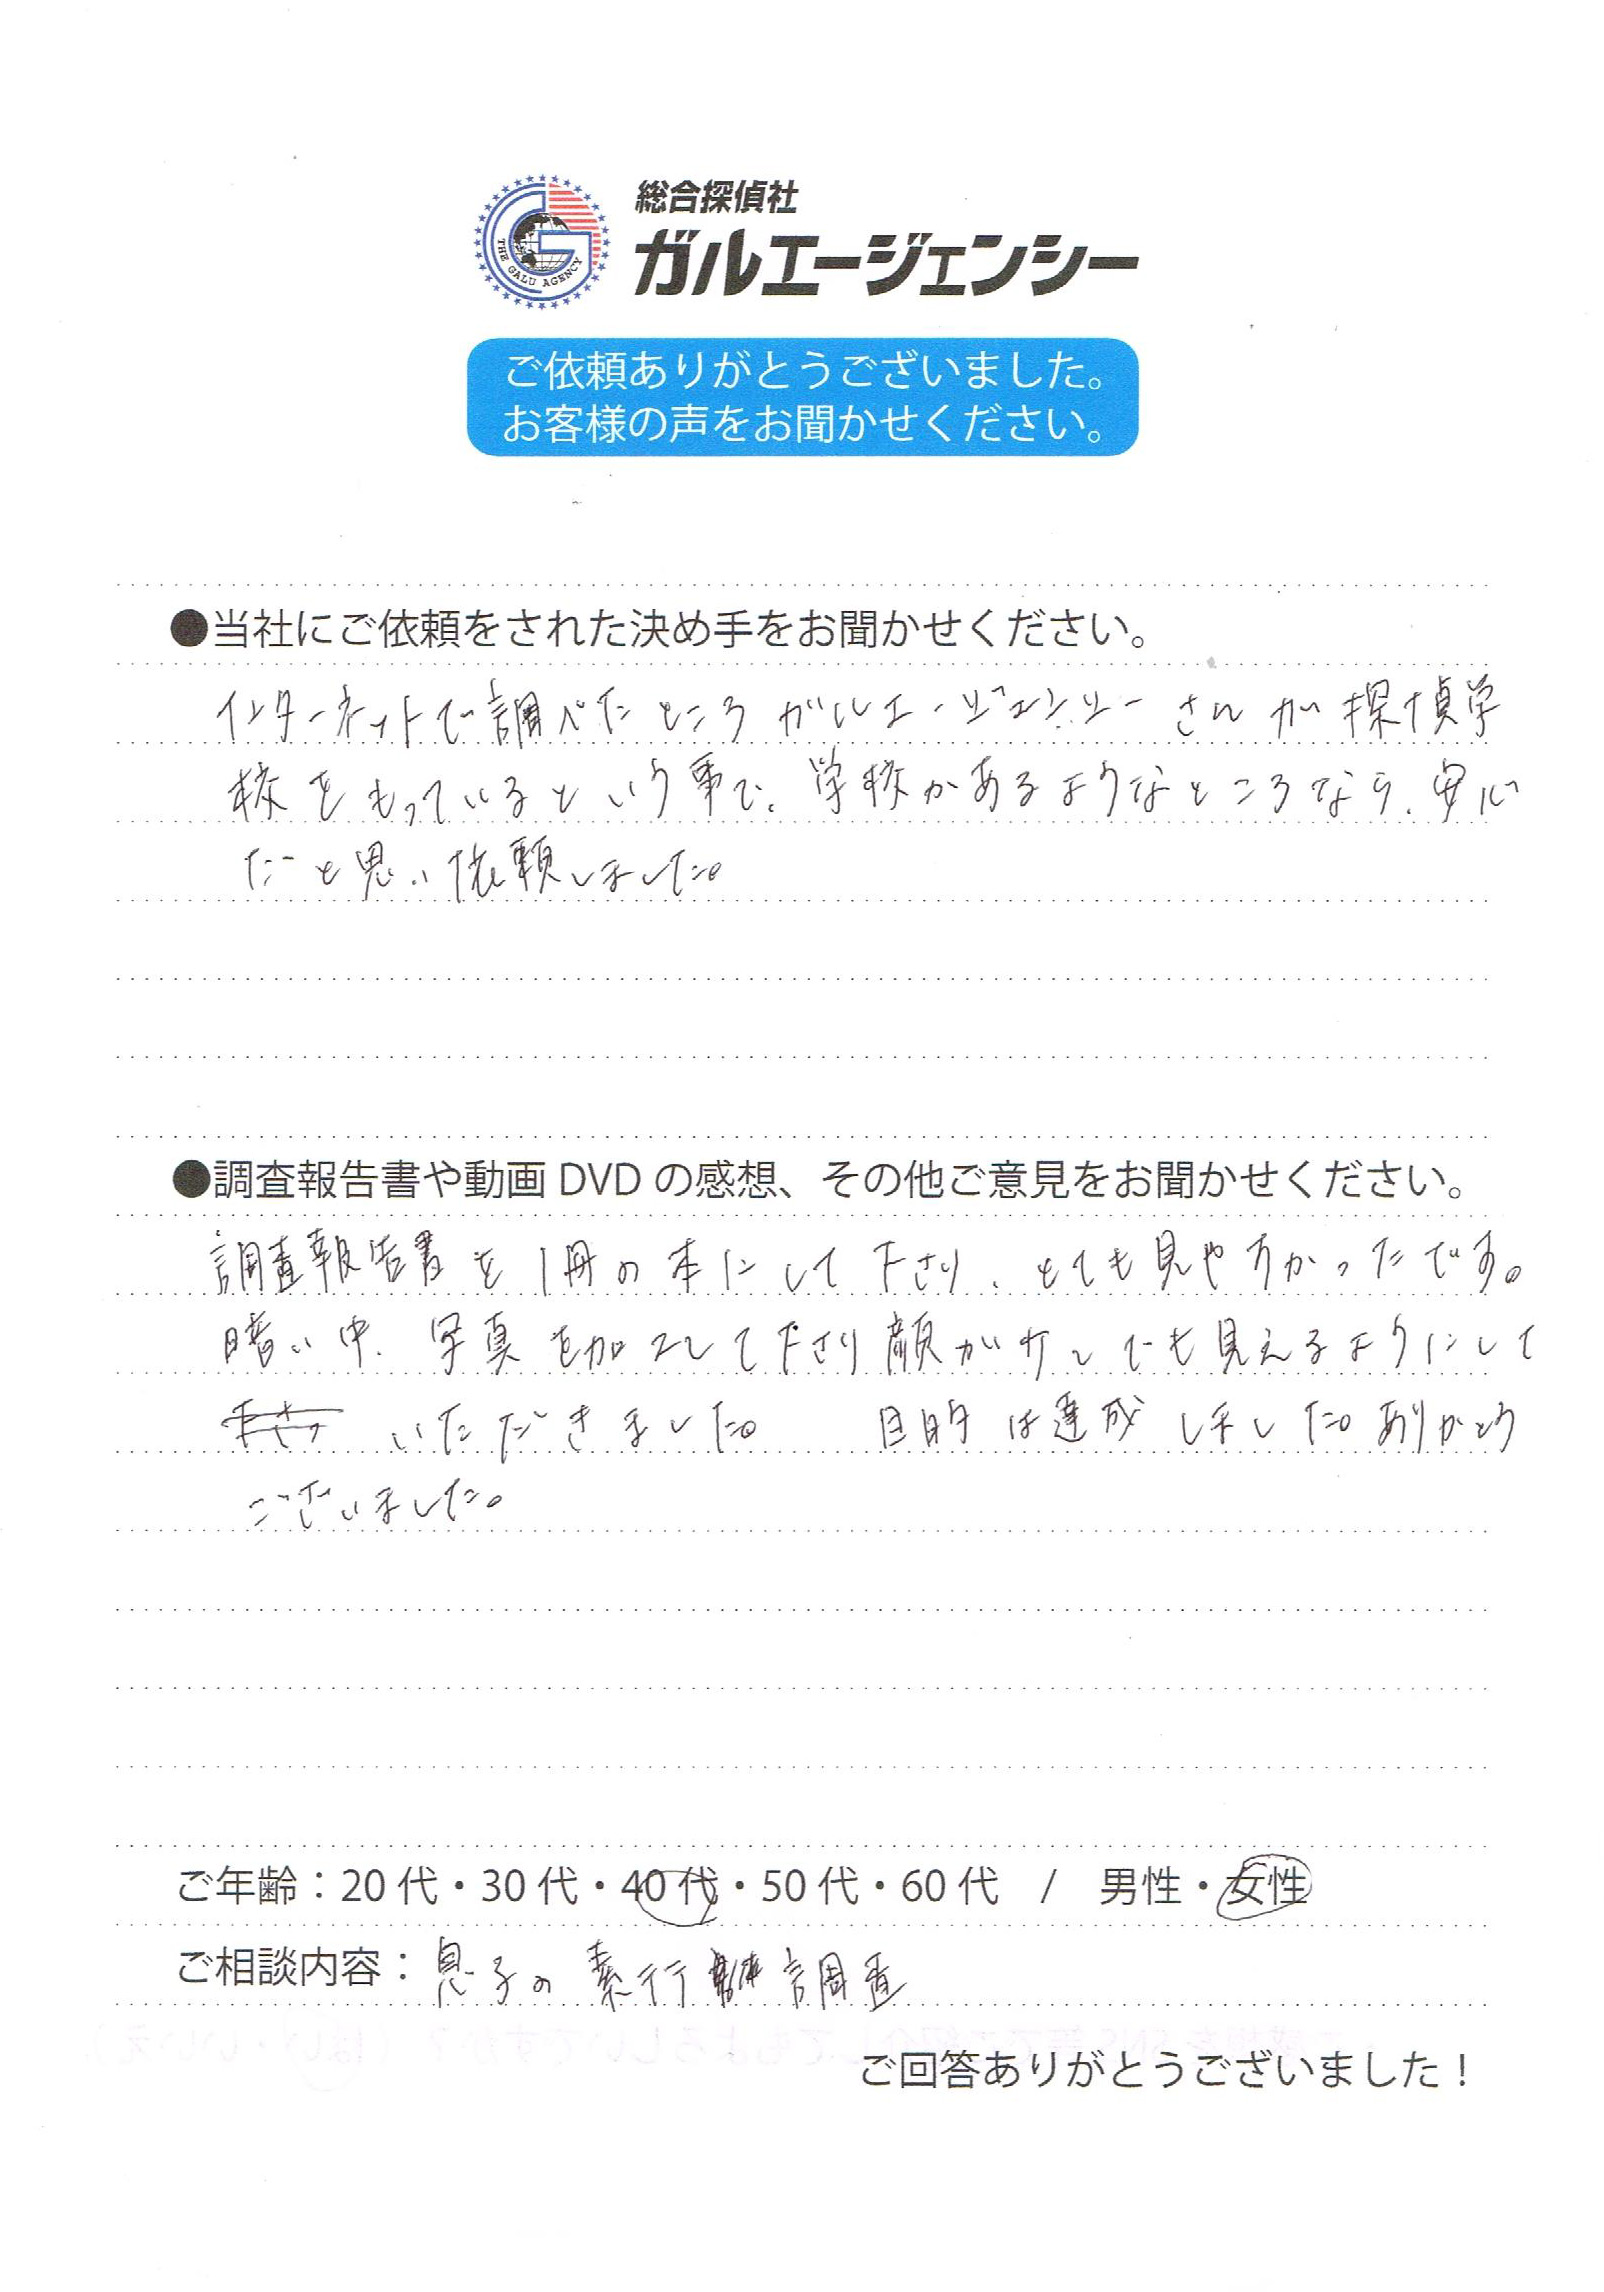 総合探偵社
ガルエージェンシー
THE GALU AGENCY
ご依頼ありがとうございました。
お客様の声をお聞かせください。
●当社にご依頼をされた決め手をお聞かせください。
インターネットで調べたところガルエージェンシーさんが探偵学
校をもっているという事で、学校があるようなところなら、安心
だと思い依頼しました。
●調査報告書や動画DVDの感想、その他ご意見をお聞かせください。
調査報告書を1冊の本にして下さり、とても見やすかったです。
暗い中、写真を加工して下さり顔が少しでも見えるようにして
いただきました。 目的は達成しました。ありがとう
ございました。
ご年齢：20代・30代・40代・50代・60代 / 男性・女性
ご相談内容：息子の素行調査
ご回答ありがとうございました！